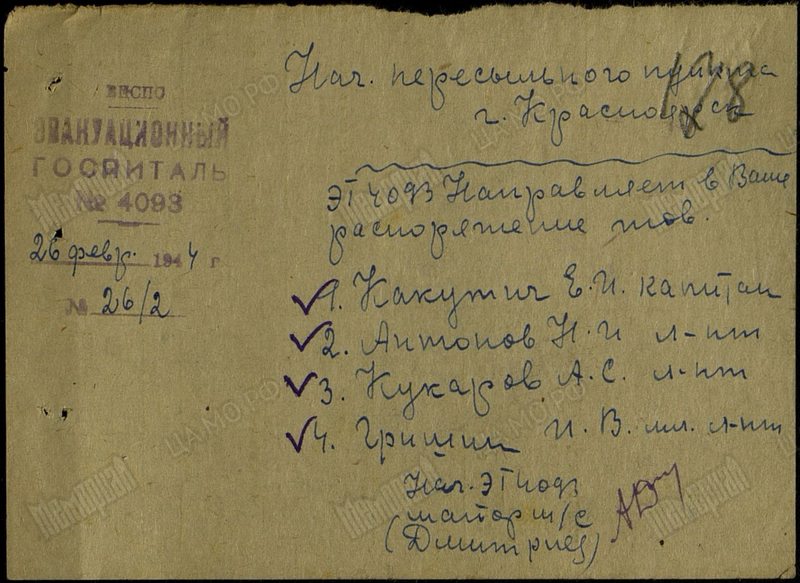 ВКСПО
ЭВАКУАЦИОННЫЙ
ГОСПИТАЛЬ
№ 4093
26 февр. 1944 г
№ 26/2
Нач. пересыльного пункта
г. Красноярск
178
ЭГ 4093 Направляет в Ваше
распоряжение тов.
1. Какутич Е.И. капитан
2. Антонов Н.И л-нт
3. Кукаров А.С. л-нт
4. Гришин И.В. мл. л-нт
Нач. ЭГ 4093
майор м/с
(Дмитриев)
Мемориал
ЦАМО.РФ